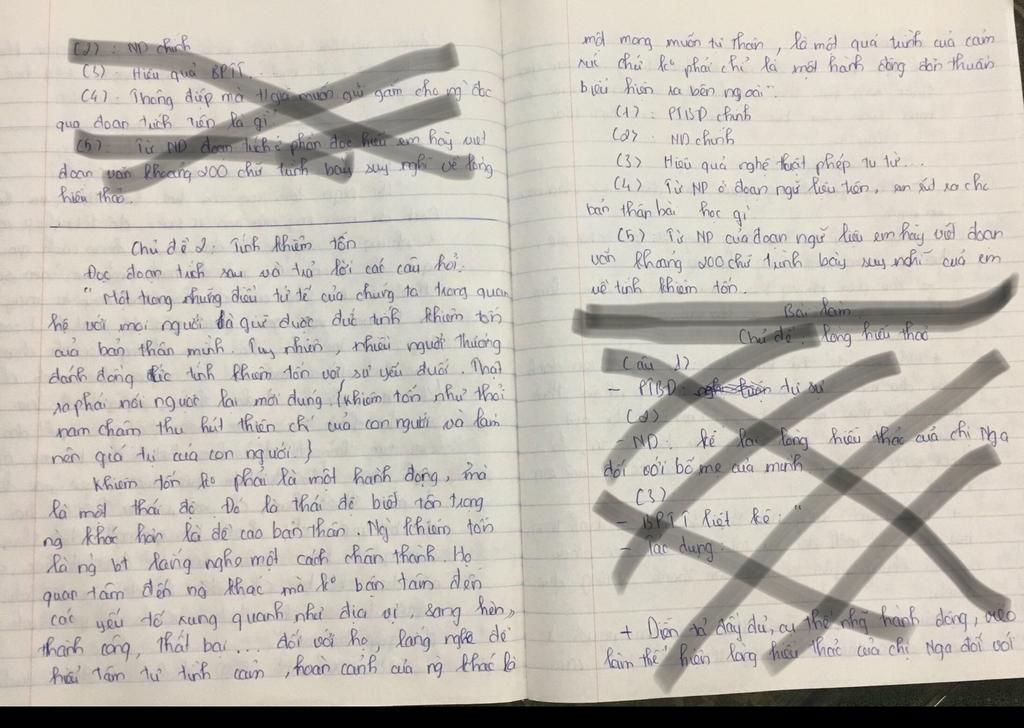 (2) : ND chính
(3) . Hiệu quả BPTT...
(4) . Thông điệp mà t/giả muốn gửi gắm cho ng` đọc
qua đoan trích trên là gì
(5) : Từ ND đoan trích ở phần đọc hiểu em hãy viết
đoan văn khoảng 200 chữ trình bày suy nghĩ về lòng
hiếu thảo.
Chủ đề 2 : Tính khiêm tốn
Đọc đoan trích sau và trả lời các câu hỏi:
" Một trong những điều tử tế của chúng ta trong quan
hệ với mọi người là giữ được đức tính khiêm tốn
của bản thân mình. Tuy nhiên, nhiều người thường
đánh đồng đức tính khiêm tốn với sự yếu đuối. Thật
ra phải nói ngược lại mới đúng. {khiêm tốn như thỏi
nam châm thu hút thiện chí của con người và làm
nên giá trị của con người.}
khiêm tốn ko phải là một hành động, mà
là một thái độ. Đó là thái độ biết tôn trọng
ng khác hơn là đề cao bản thân. Ng` khiêm tốn
là ng` bt lắng nghe một cách chân thành. Họ
quan tâm đến ng khác mà ko bận tâm đến
các yếu tố xung quanh như địa vị, sang hèn,
thành công, thất bại... đối với họ, lắng nghe để
hiểu tâm tư tình cảm, hoàn cảnh của ng khác là
một mong muốn tự thân, là một quá trình của cảm
xúc chứ ko phải chỉ là một hành động đơn thuần
biểu hiện ra bên ngoài".
(1) : PTBĐ chính
(2) : ND chính
(3) Hiệu quả nghệ thuật phép tu từ...
(4) Từ ND ở đoan ngữ liệu trên, em rút ra cho
bản thân bài học gì
(5) : Từ ND của đoan ngữ liệu em hãy viết đoan
văn khoang 200 chữ trình bày suy nghĩ của em
về tính khiêm tốn.
Bài làm
Chủ đề : lòng hiếu thảo
(Câu 1)
- PTBĐ : tự sự
(2)
- ND : kể lại lòng hiếu thảo của chị Nga
đối với bố mẹ của mình
(3)
- BPTT liệt kê : "
- Tác dụng :
+ Diễn tả đầy đủ, cụ thể nhg hành động,
làm thể hiện lòng hiếu thảo của chị Nga đối với